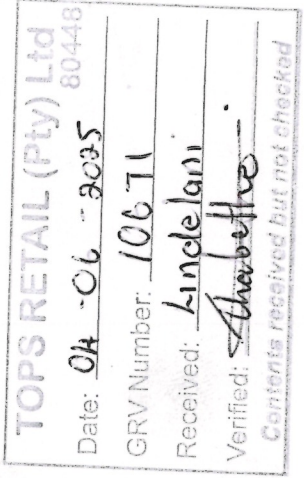 TOPS RETAIL (Pty) Ltd
80448
Date: 04-06-2025
GRV Number: 10671
Received: Lindelani
Verified: Thabethe
Contents received but not checked